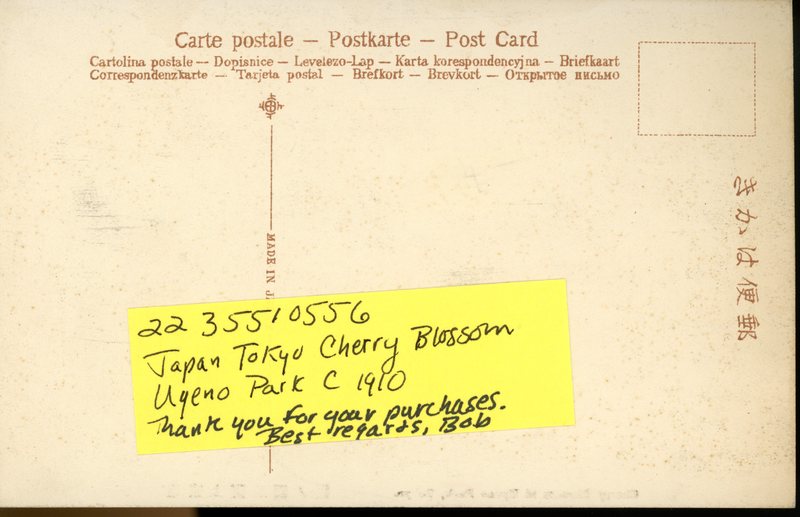 Carte postale – Postkarte – Post Card
Cartolina postale – Dopisnice – Levelezo-Lap – Karta korespondencyjna – Briefkaart
Correspondenzkarte – Tarjeta postal – Brefkort – Brevkort – Открытое письмо
きかは便郵
MADE IN
22 35510556
Japan Tokyo Cherry Blossom
Uyeno Park C 1910
Thank you for your purchases.
Best regards, Bob